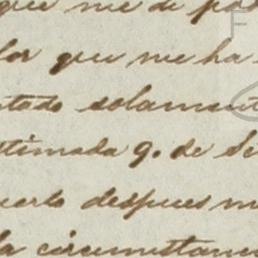 que me de pa
lor que me ha
ntado solament
stimada g. de Se
uerto despues m
la circunstanc